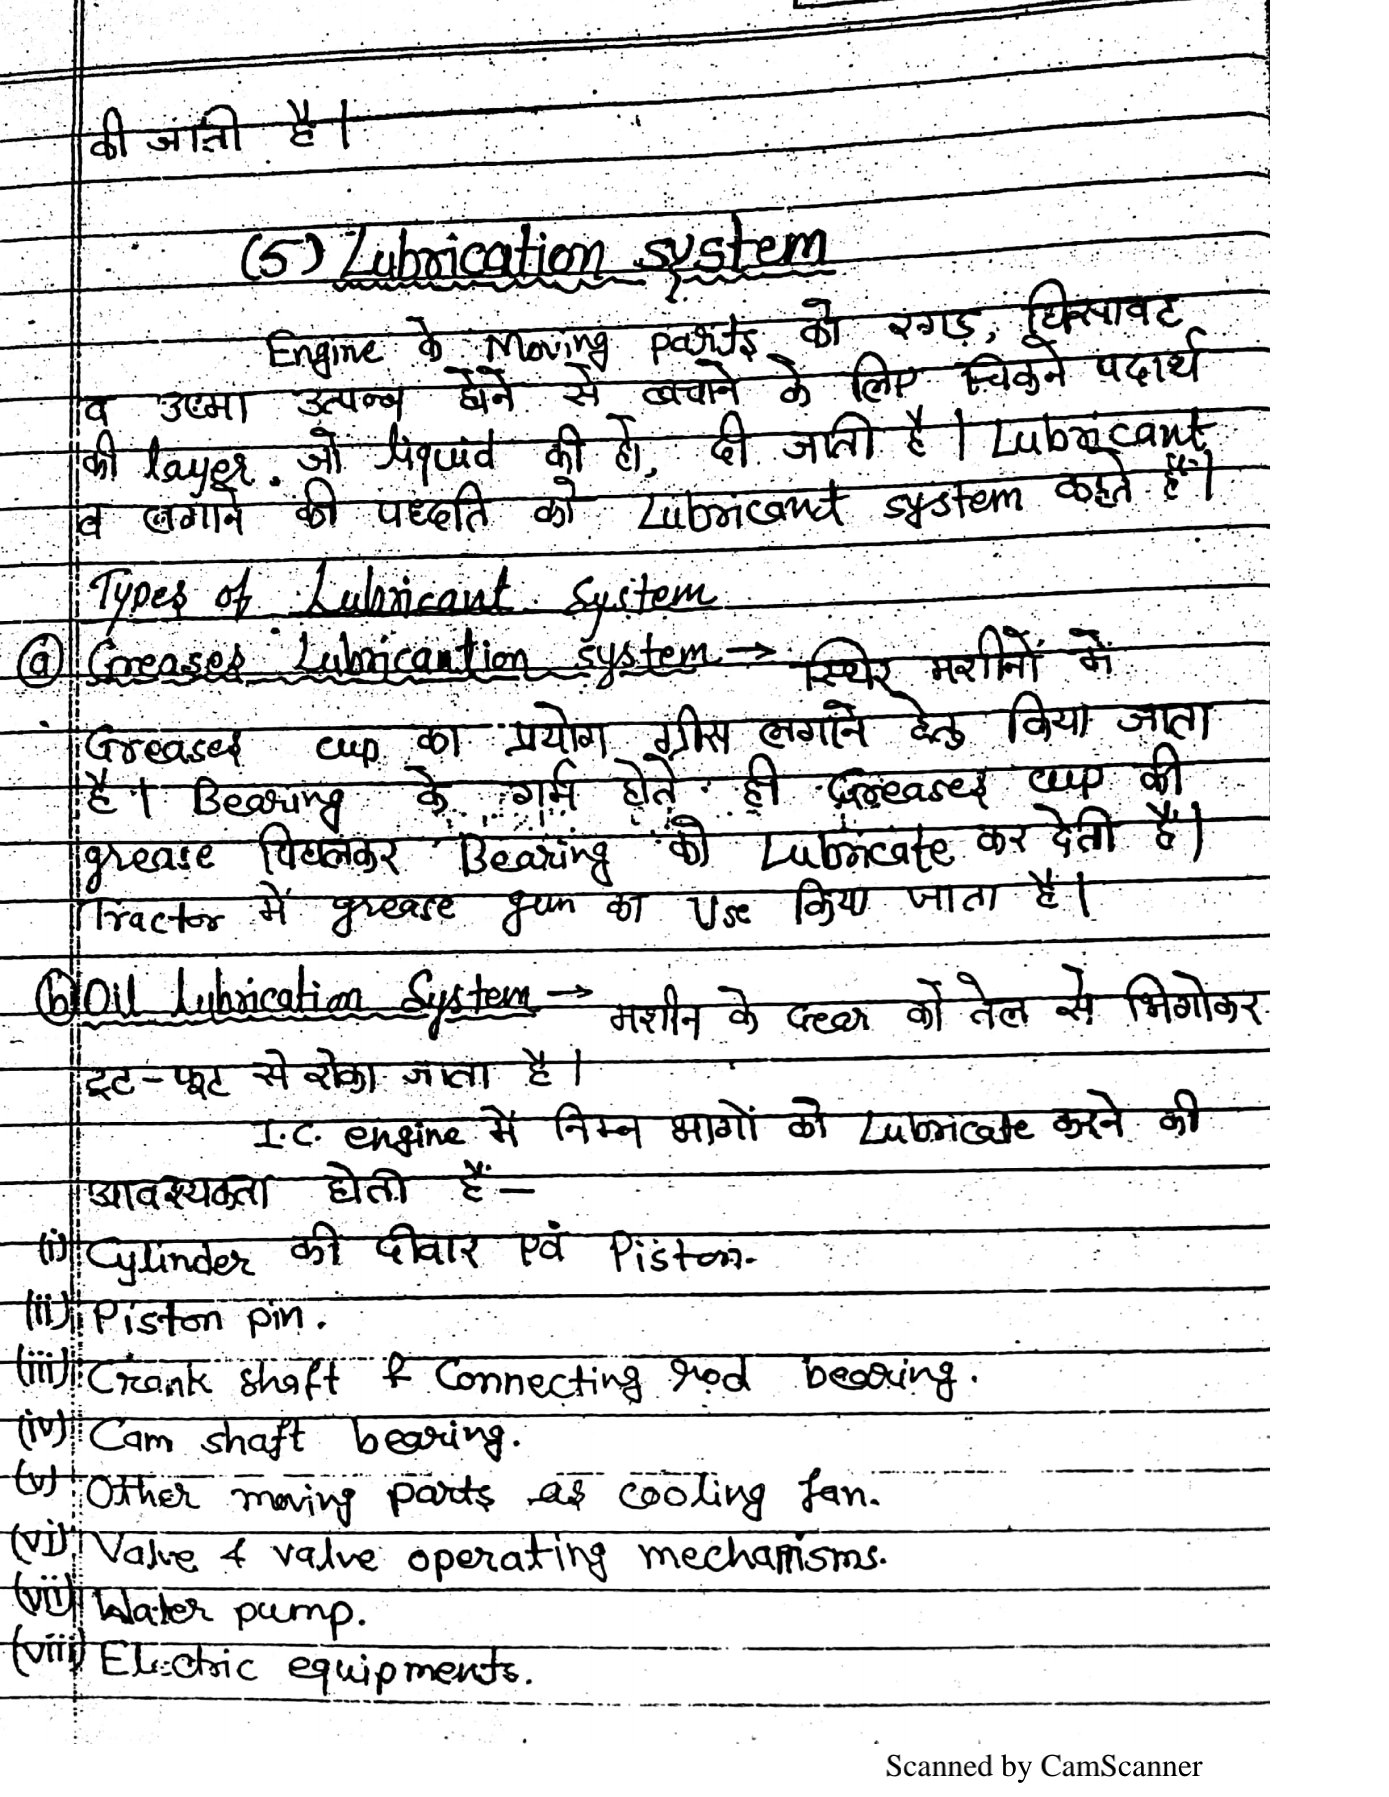 की जाती है।
(5) Lubrication system
Engine के Moving parts को रगड़, घिसावट
व उष्मा उत्पन्न होने से बचाने के लिए चिकने पदार्थ
की layer. जो liquid की हो, दी जाती है। Lubricant
व लगाने की पध्दति को Lubricant system कहते हैं।
Types of Lubricant System
(a) Greases Lubricantion system → स्थिर मशीनों में
Greases cup का प्रयोग ग्रीस लगाने हेतु किया जाता
है। Bearing के गर्म होते ही Greases cup की
grease पिघलकर Bearing को Lubricate कर देती है।
Tractor में grease gun का Use किया जाता है।
(b) Oil lubrication System → मशीन के Gear को तेल से भिगोकर
टूट-फूट से रोका जाता है।
I.C. engine में निम्न भागों को Lubricate करने की
आवश्यकता होती हैं—
(i) Cylinder की दीवार एवं Piston.
(ii) Piston pin.
(iii) Crank shaft & Connecting rod bearing.
(iv) Cam shaft bearing.
(v) Other moving parts as cooling fan.
(vi) Valve & valve operating mechanisms.
(vii) Water pump.
(viii) Electric equipments.
Scanned by CamScanner